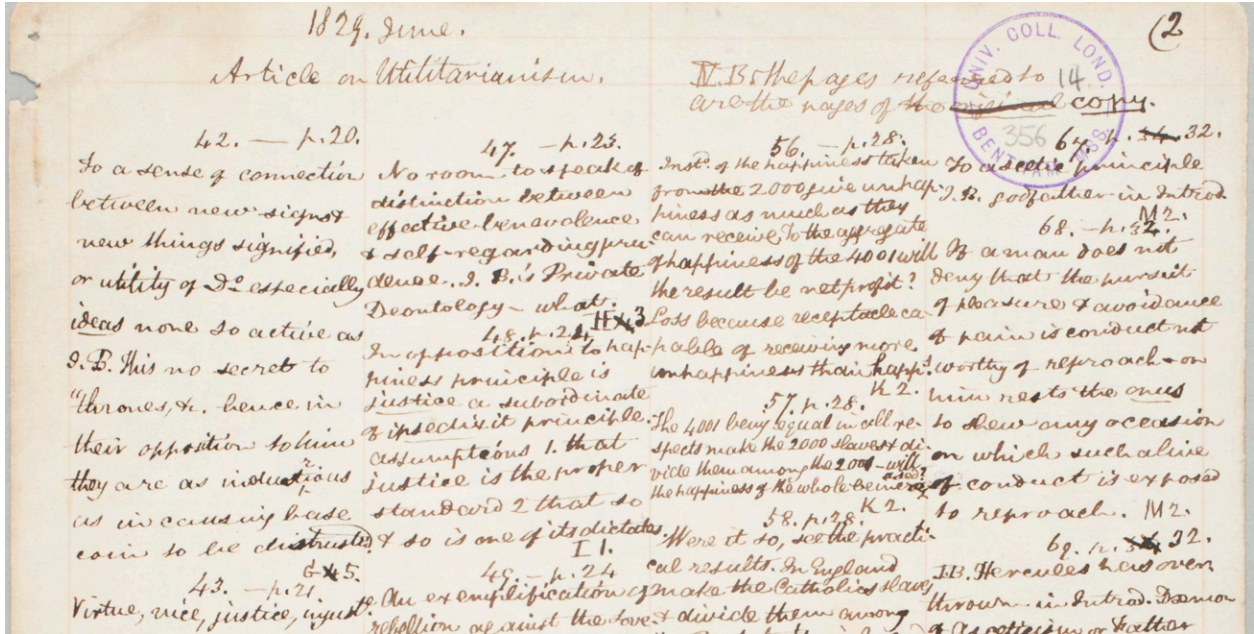 1829. June.
(2
Article on Utilitarianism.
N.B. the pages referred to
are the pages of the original copy.
UNIV. COLL. LOND.
BENTHAM MSS.
14.
356
42. — p. 20.
To a sense of connection
between new signs &
new things signified,
or utility of Do especially
ideas none so active as
J.B. This no secret to
"thrones, &c. hence in
their opposition to him
they are as industrious
as in causing base
coin to be distrusted.
G 5.
43. — p. 21.
Virtue, vice, justice, injust
47. — p. 23.
No room to speak of
distinction between
effective benevolence
& self-regarding pru-
dence. J.B.'s Private
Deontology — what.
H 3
48. p. 24
In opposition to hap-
piness principle is
justice a subordinate
of ipsedixit principle.
assumptions 1. that
justice is the proper
standard 2 that so
& so is one of its dictates.
I 1.
49. — p. 24
An exemplification of
rebellion against the sove-
56. — p. 28.
Instd. of the happiness taken
from the 2000 give unhap-
piness as much as they
can receive to the aggregate
of happiness of the 4001 will
the result be net profit?
Loss because receptacle ca-
pable of receiving more
unhappiness than happs.
K 2.
57. p. 28.
The 4001 being equal in all re-
spects make the 2000 slaves & di-
vide them among the 2001 — will
the happiness of the whole be increased?
K 2.
58. p. 28.
Were it so, see the practi-
cal results. In England
make the Catholics slaves
& divide them among
67. p. 34. 32.
To ascetic principle
J.B. godfather in Introd.
M 2.
68. — p. 32.
If a man does not
deny that the pursuit
of pleasure & avoidance
of pain is conduct not
worthy of reproach — on
him rests the onus
to shew any occasion
on which such a line
of conduct is exposed
to reproach.
M 2.
69. p. 34 32.
J.B. Hercules has over
thrown in Introd. Dæmon
of Asceticism or Father